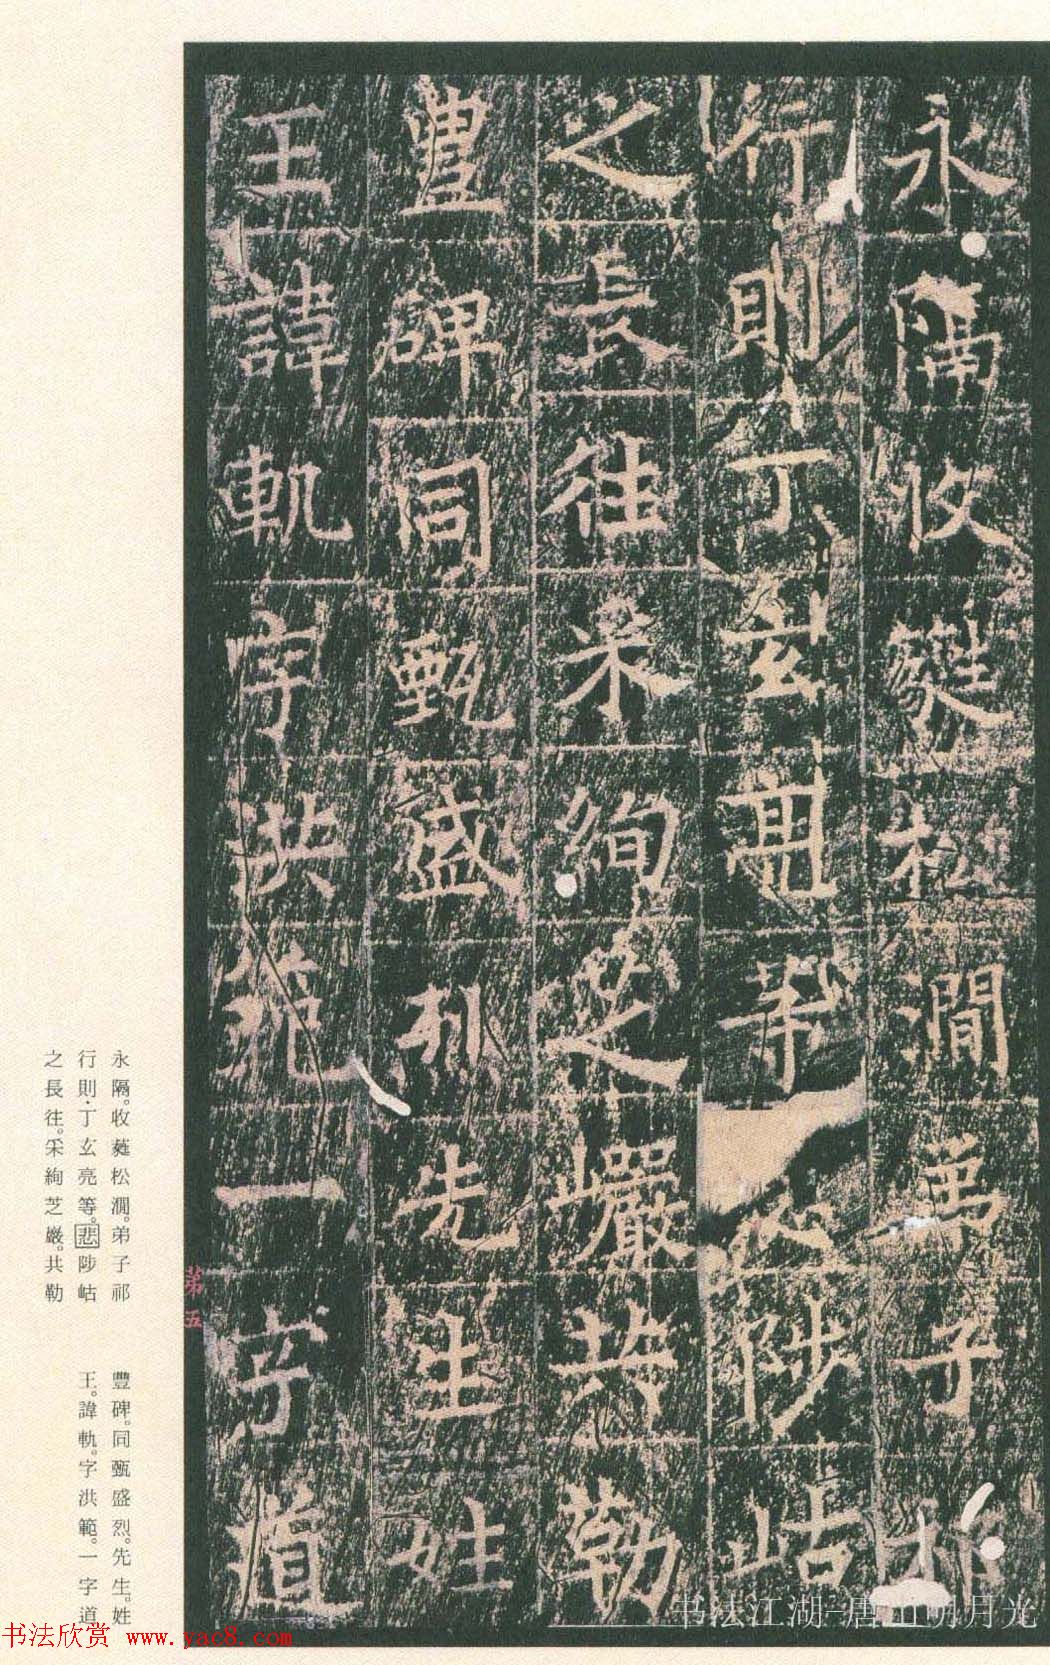 永隔收蕤松澗弟子祁
行則丁玄亮等悲陟岵
之長往采絢芝巖共勒
豐碑同甄盛烈先生姓
王諱軌字洪範一字道
永隔。收蕤松澗。弟子祁
行則·丁玄亮等。悲陟岵
之長往。采絢芝巖。共勒
豐碑。同甄盛烈。先生。姓
王。諱軌。字洪範。一字道
第五
书法江湖-唐山明月光
书法欣赏 www.yac8.com